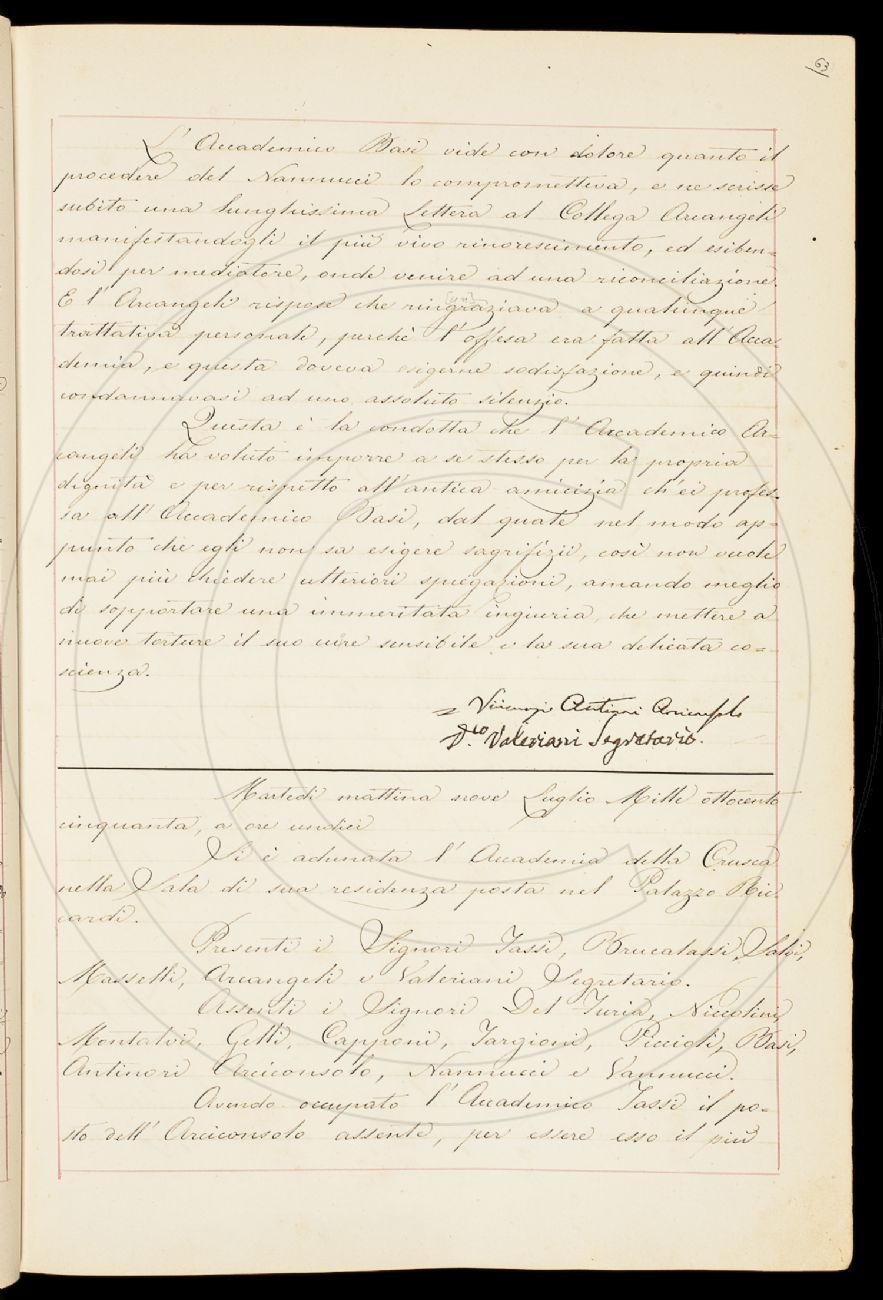 63
L' Accademico Basi vide con dolore quanto il
procedere del Nannucci lo comprometteva, e ne scrisse
subito una lunghissima Lettera al Collega Arcangeli
manifestandogli il più vivo rincrescimento, ed esiben-
dosi per mediatore, onde venire ad una riconciliazione.
E l' Arcangeli rispose che ringraziava a qualunque
trattativa personale, perchè l' offesa era fatta all' Acca-
demia, e questa doveva esigerne sodisfazione, e quindi
condannavasi ad uno assoluto silenzio.
Questa è la condotta che l' Accademico Ar-
cangeli ha voluto imporre a se stesso per la propria
dignità e per rispetto all' antica amicizia ch' ei profes-
sa all' Accademico Basi, dal quale nel modo ap-
punto che egli non sa esigere sagrifizii, così non vuole
mai più chiedere ulteriori spiegazioni, amando meglio
di sopportare una immeritata ingiuria, che mettere a
nuove torture il suo cuore sensibile e la sua delicata co-
scienza.
Antinori
D.co Valeriani Segretario.
Martedì mattina nove Luglio Mille ottocento
cinquanta, a ore undici
Si è adunata l' Accademia della Crusca
nella Sala di sua residenza posta nel Palazzo Ric-
cardi.
Presenti i Signori Tassi, Brucalassi, Salvi,
Masselli, Arcangeli e Valeriani Segretario.
Assenti i Signori Del Furia, Niccolini,
Montalvi, Gelli, Capponi, Targioni, Piccioli, Basi,
Antinori Arciconsolo, Nannucci e Vannucci.
Avendo occupato l' Accademico Tassi il po-
sto dell' Arciconsolo assente, per essere esso il più